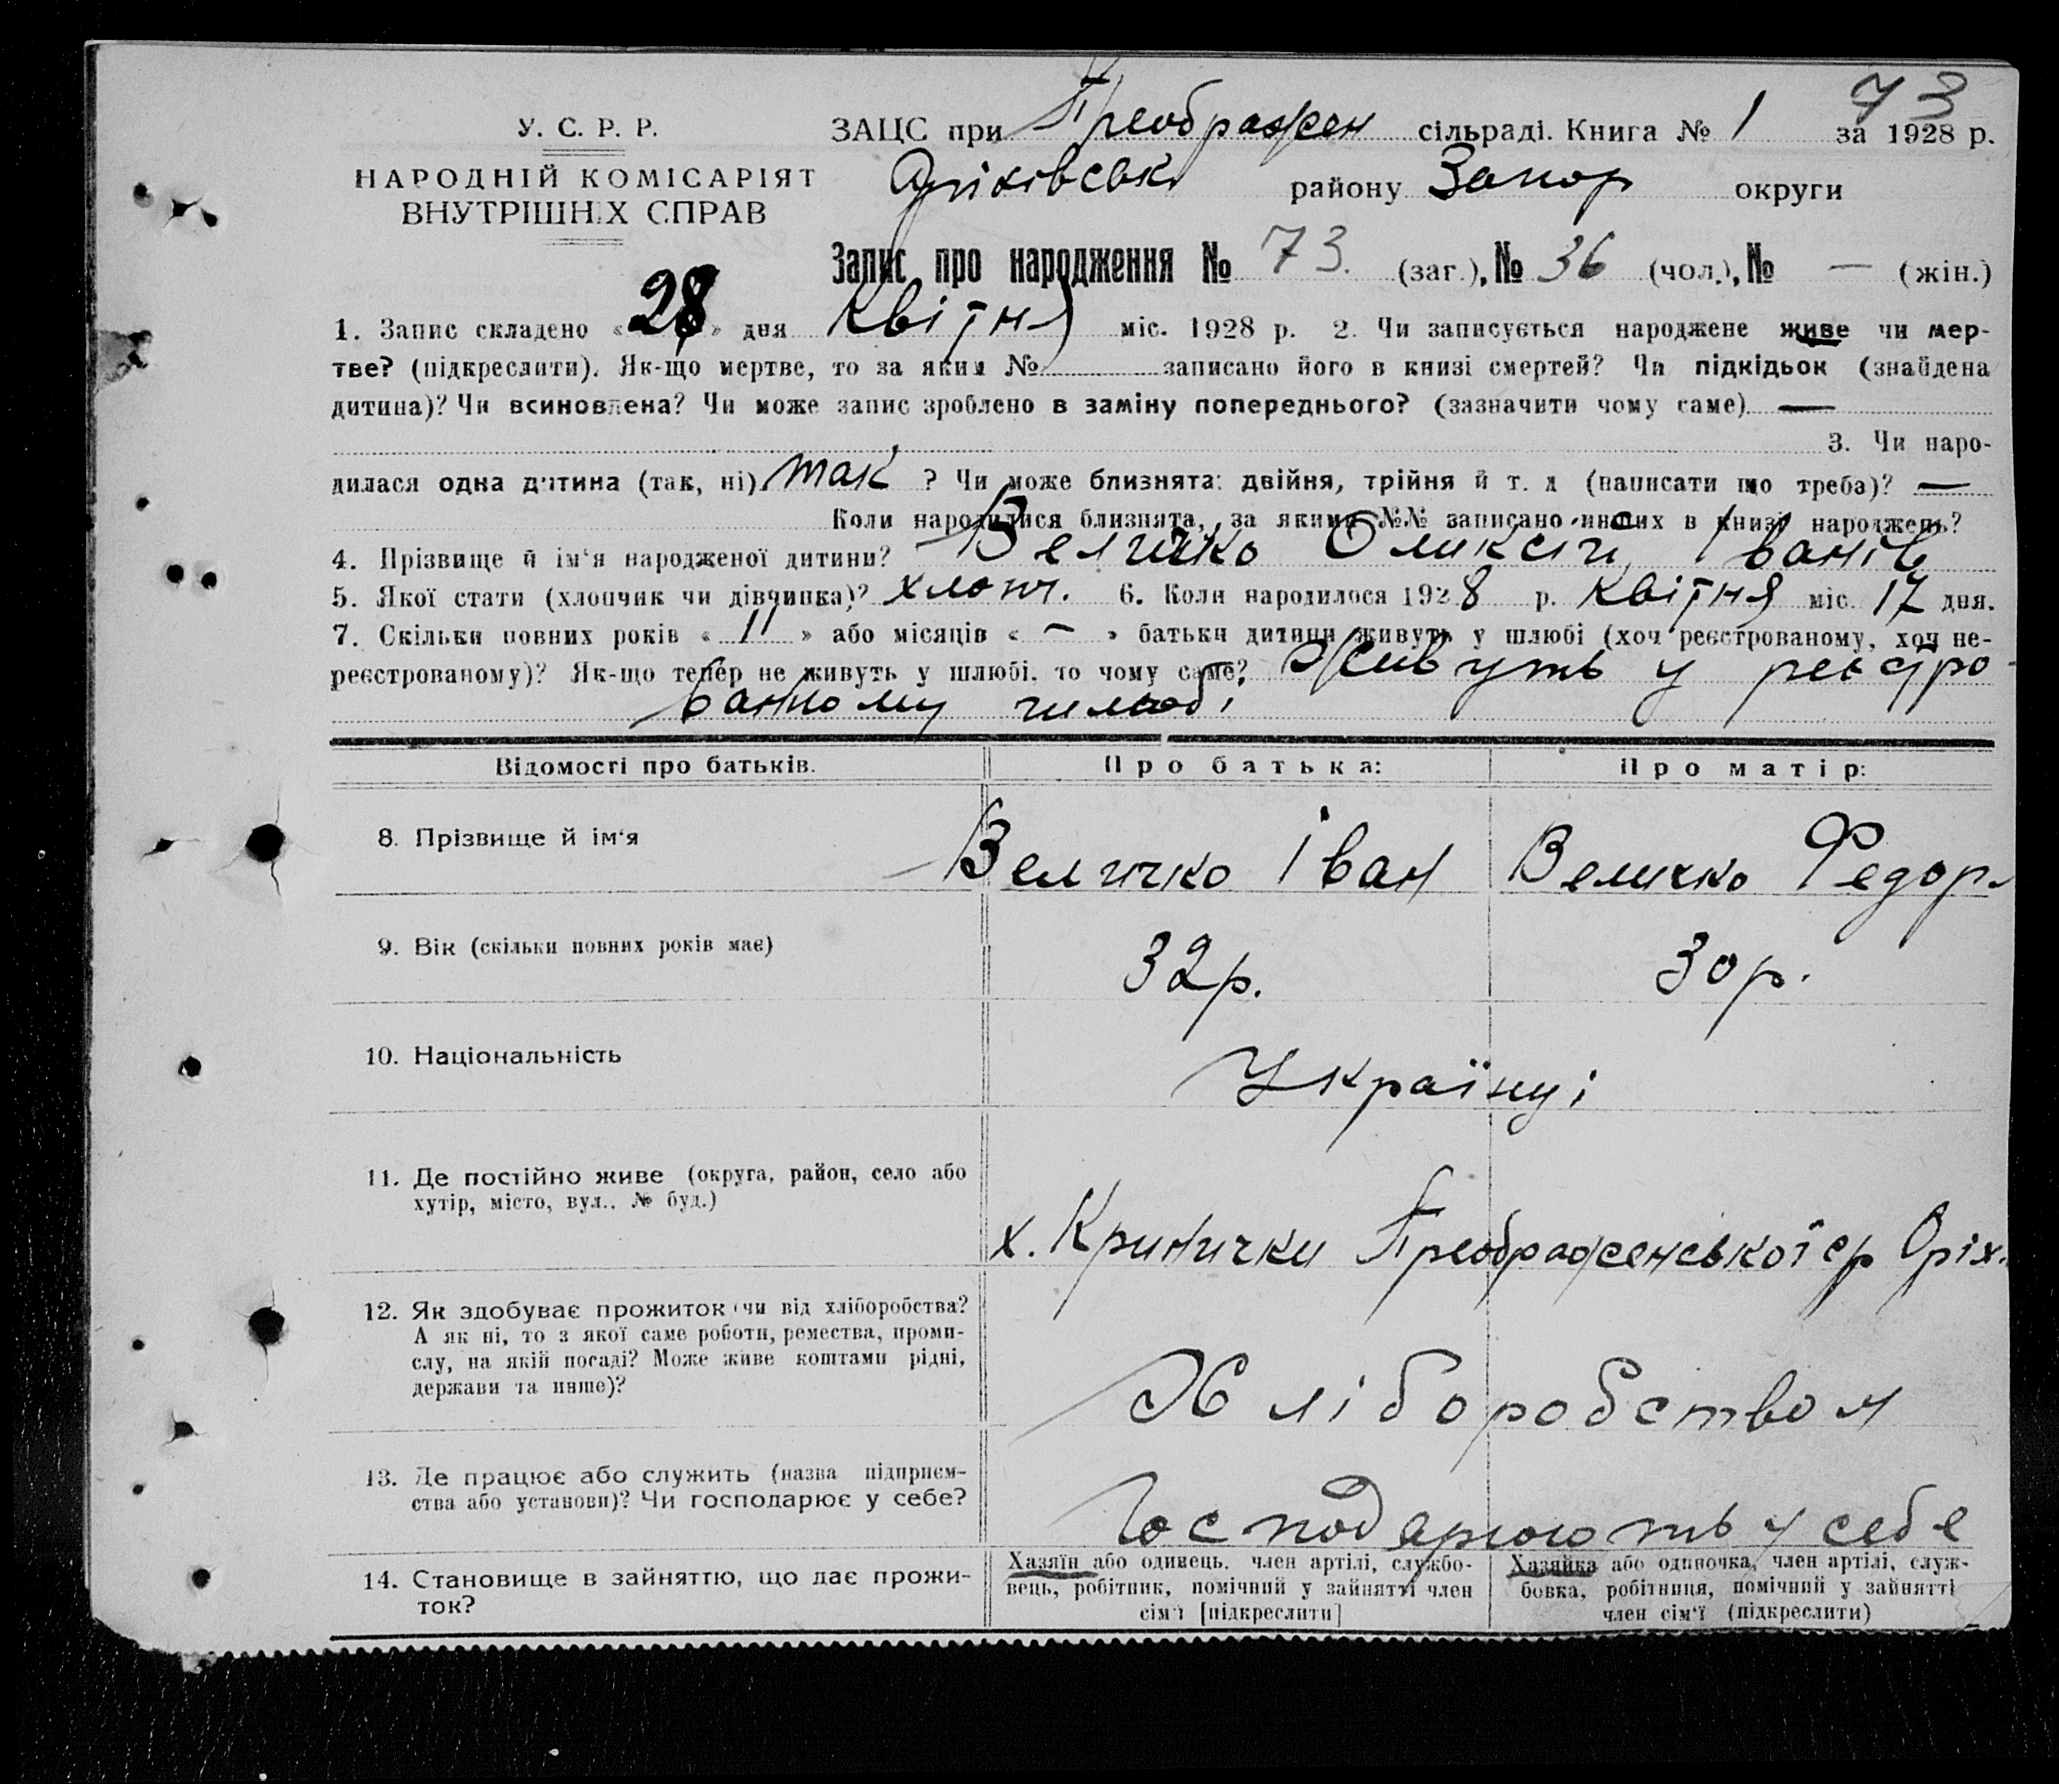 73
У. С. Р. Р.
ЗАЦС при Преображен сільраді. Книга № 1 за 1928 р.
НАРОДНІЙ КОМІСАРІЯТ
ВНУТРІШНІХ СПРАВ
Оріхівськ району Запор округи
Запис про народження № 73. (заг.), № 36 (чол.), № — (жін.)
1. Запис складено «28» дня Квітня міс. 1928 р. 2. Чи записується народжене живе чи мер-
тве? (підкреслити). Як-що мертве, то за яким № записано його в книзі смертей? Чи підкідьок (знайдена
дитина)? Чи всиновлена? Чи може запис зроблено в заміну попереднього? (зазначити чому саме) —
3. Чи наро-
дилася одна дитина (так, ні) так ? Чи може близнята: двійня, трійня й т. д (написати що треба)? —
Коли народилися близнята, за якими №№ записано инших в книзі народжень?
4. Прізвище й ім'я народженої дитини? Величко Олексій Іванів
5. Якої статі (хлопчик чи дівчинка)? хлопч. 6. Коли народилося 1928 р. Квітня міс. 17 дня.
7. Скільки повних років «11» або місяців « — » батьки дитини живуть у шлюбі (хоч реєстрованому, хоч не-
реєстрованому)? Як-що тепер не живуть у шлюбі, то чому саме? Живуть у реєстро-
ванному шлюбі
Відомості про батьків. Про батька: Про матір:
8. Прізвище й ім'я Величко Іван Величко Федор.
9. Вік (скільки повних років має) 32р. 30р.
10. Національність Українці
11. Де постійно живе (округа, район, село або
хутір, місто, вул., № буд.)
х. Кринички Преображенської ср Оріх.
12. Як здобуває прожиток (чи від хліборобства?
А як ні, то з якої саме роботи, ремества, проми-
слу, на якій посаді? Може живе коштами рідні,
держави та инше)?
Хліборобством
13. Де працює або служить (назва підприєм-
ства або установи)? Чи господарює у себе?
Господарюють у себе
14. Становище в зайняттю, що дає прожи-
ток?
Хазяїн або одинець, член артілі, службо-
вець, робітник, помічний у зайнятті член
сім'ї [підкреслити]
Хазяйка або одиночка, член артілі, служ-
бовка, робітниця, помічний у зайнятті
член сім'ї (підкреслити)